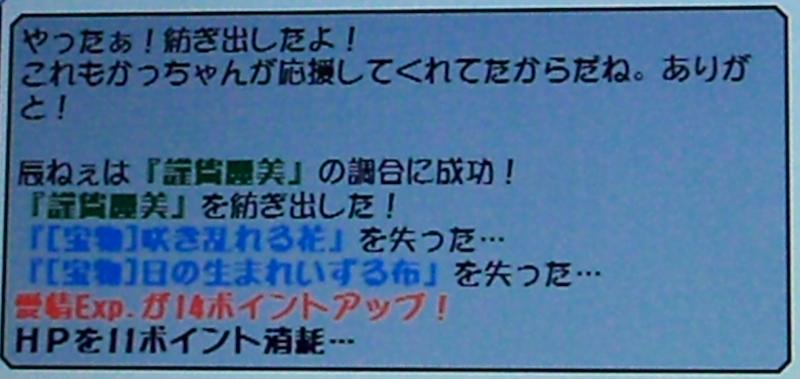 やったぁ！紡ぎ出したよ！
これもかっちゃんが応援してくれてたからだね。ありが
と！
辰ねぇは『謹賀麗美』の調合に成功！
『謹賀麗美』を紡ぎ出した！
『[宝物]咲き乱れる花』を失った…
『[宝物]日の生まれいずる布』を失った…
愛情Exp.が14ポイントアップ！
ＨＰを11ポイント消耗…